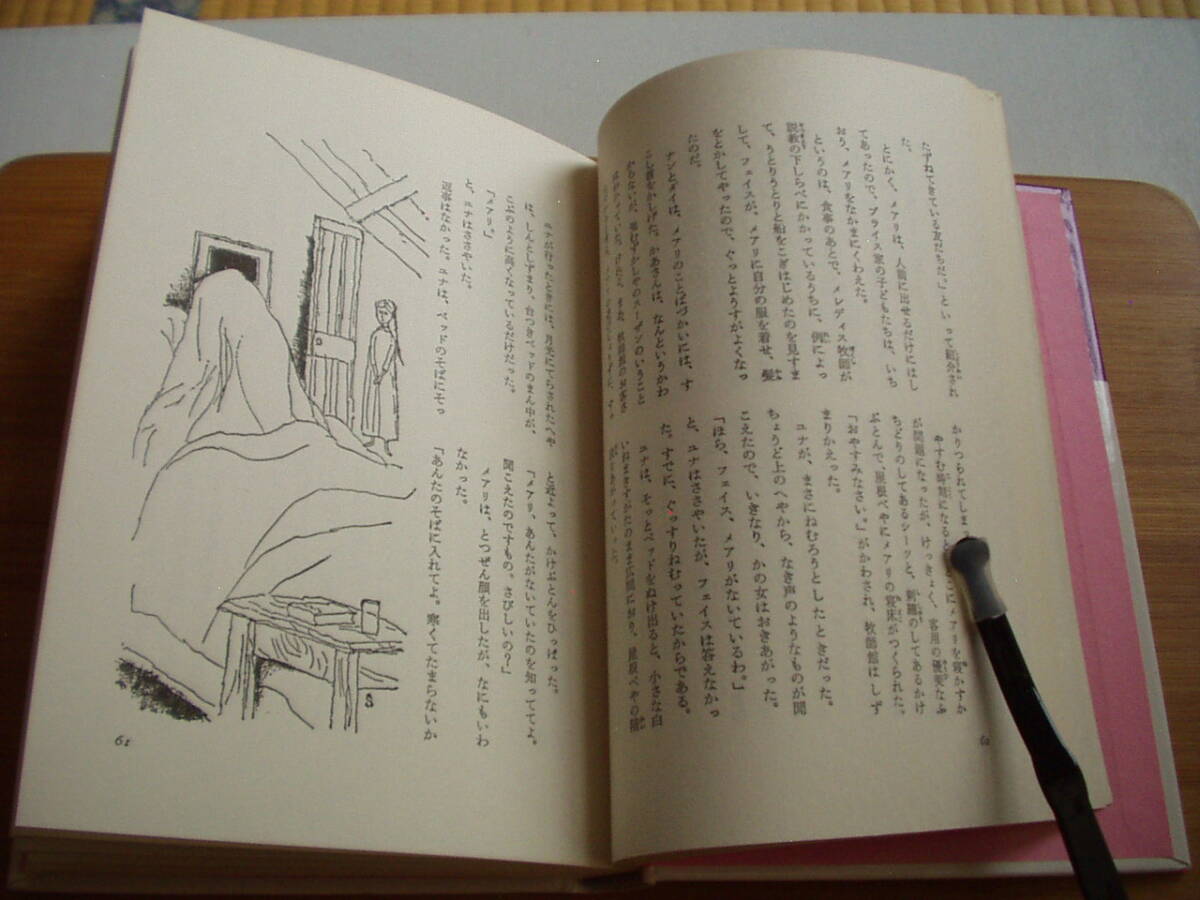 たずねてきている友だちだ。」といって紹介され
た。
とにかく、メアリは、人前に出せるだけにはし
てあったので、ブライス家の子どもたちは、いち
おう、メアリをなかまにくわえた。
というのは、食事のあとで、メレディス牧師が
説教の下しらべにかかっているうちに、例によっ
て、うとりうとりと船をこぎはじめたのを見すま
して、フェイスが、メアリに自分の服を着せ、髪
をとかしてやったので、ぐっとようすがよくなっ
たのだ。
ナンとダイは、メアリのことばづかいには、す
こし首をかしげた。かあさんは、なんというかわ
からないが、事むずかしやのスーザンのいうこと
かりつられてしま
やすむ時刻になると こにメアリを寝かすか
が問題になったが、けっきょく、客用の優美なふ
ちどりのしてあるシーツと、刺繍のしてあるかけ
ぶとんで、屋根べやにメアリの寝床がつくられた。
「おやすみなさい。」がかわされ、牧師館はしず
まりかえった。
ユナが、まさにねむろうとしたときだった。
ちょうど上のへやから、なき声のようなものが聞
こえたので、いきなり、かの女はおきあがった。
「ほら、フェイス、メアリがないているわ。」
と、ユナはささやいたが、フェイスは答えなかっ
た。すでに、ぐっすりねむっていたからである。
ユナは、そっとベッドをぬけ出ると、小さな白
いねまきすがたのまま広間におり、屋根べやの階
60
ユナが行ったときには、月光にてらされたへや
は、しんとしずまり、台つきベッドのまん中が、
こぶのように高くなっているだけだった。
「メアリ。」
と、ユナはささやいた。
返事はなかった。ユナは、ベッドのそばにそっ
と近よって、かけぶとんをひっぱった。
「メアリ、あんたがないていたのを知ってってよ。
聞こえたのですもの。さびしいの？」
メアリは、とつぜん顔を出したが、なにもいわ
なかった。
「あんたのそばに入れてよ。寒くてたまらないか
S
61